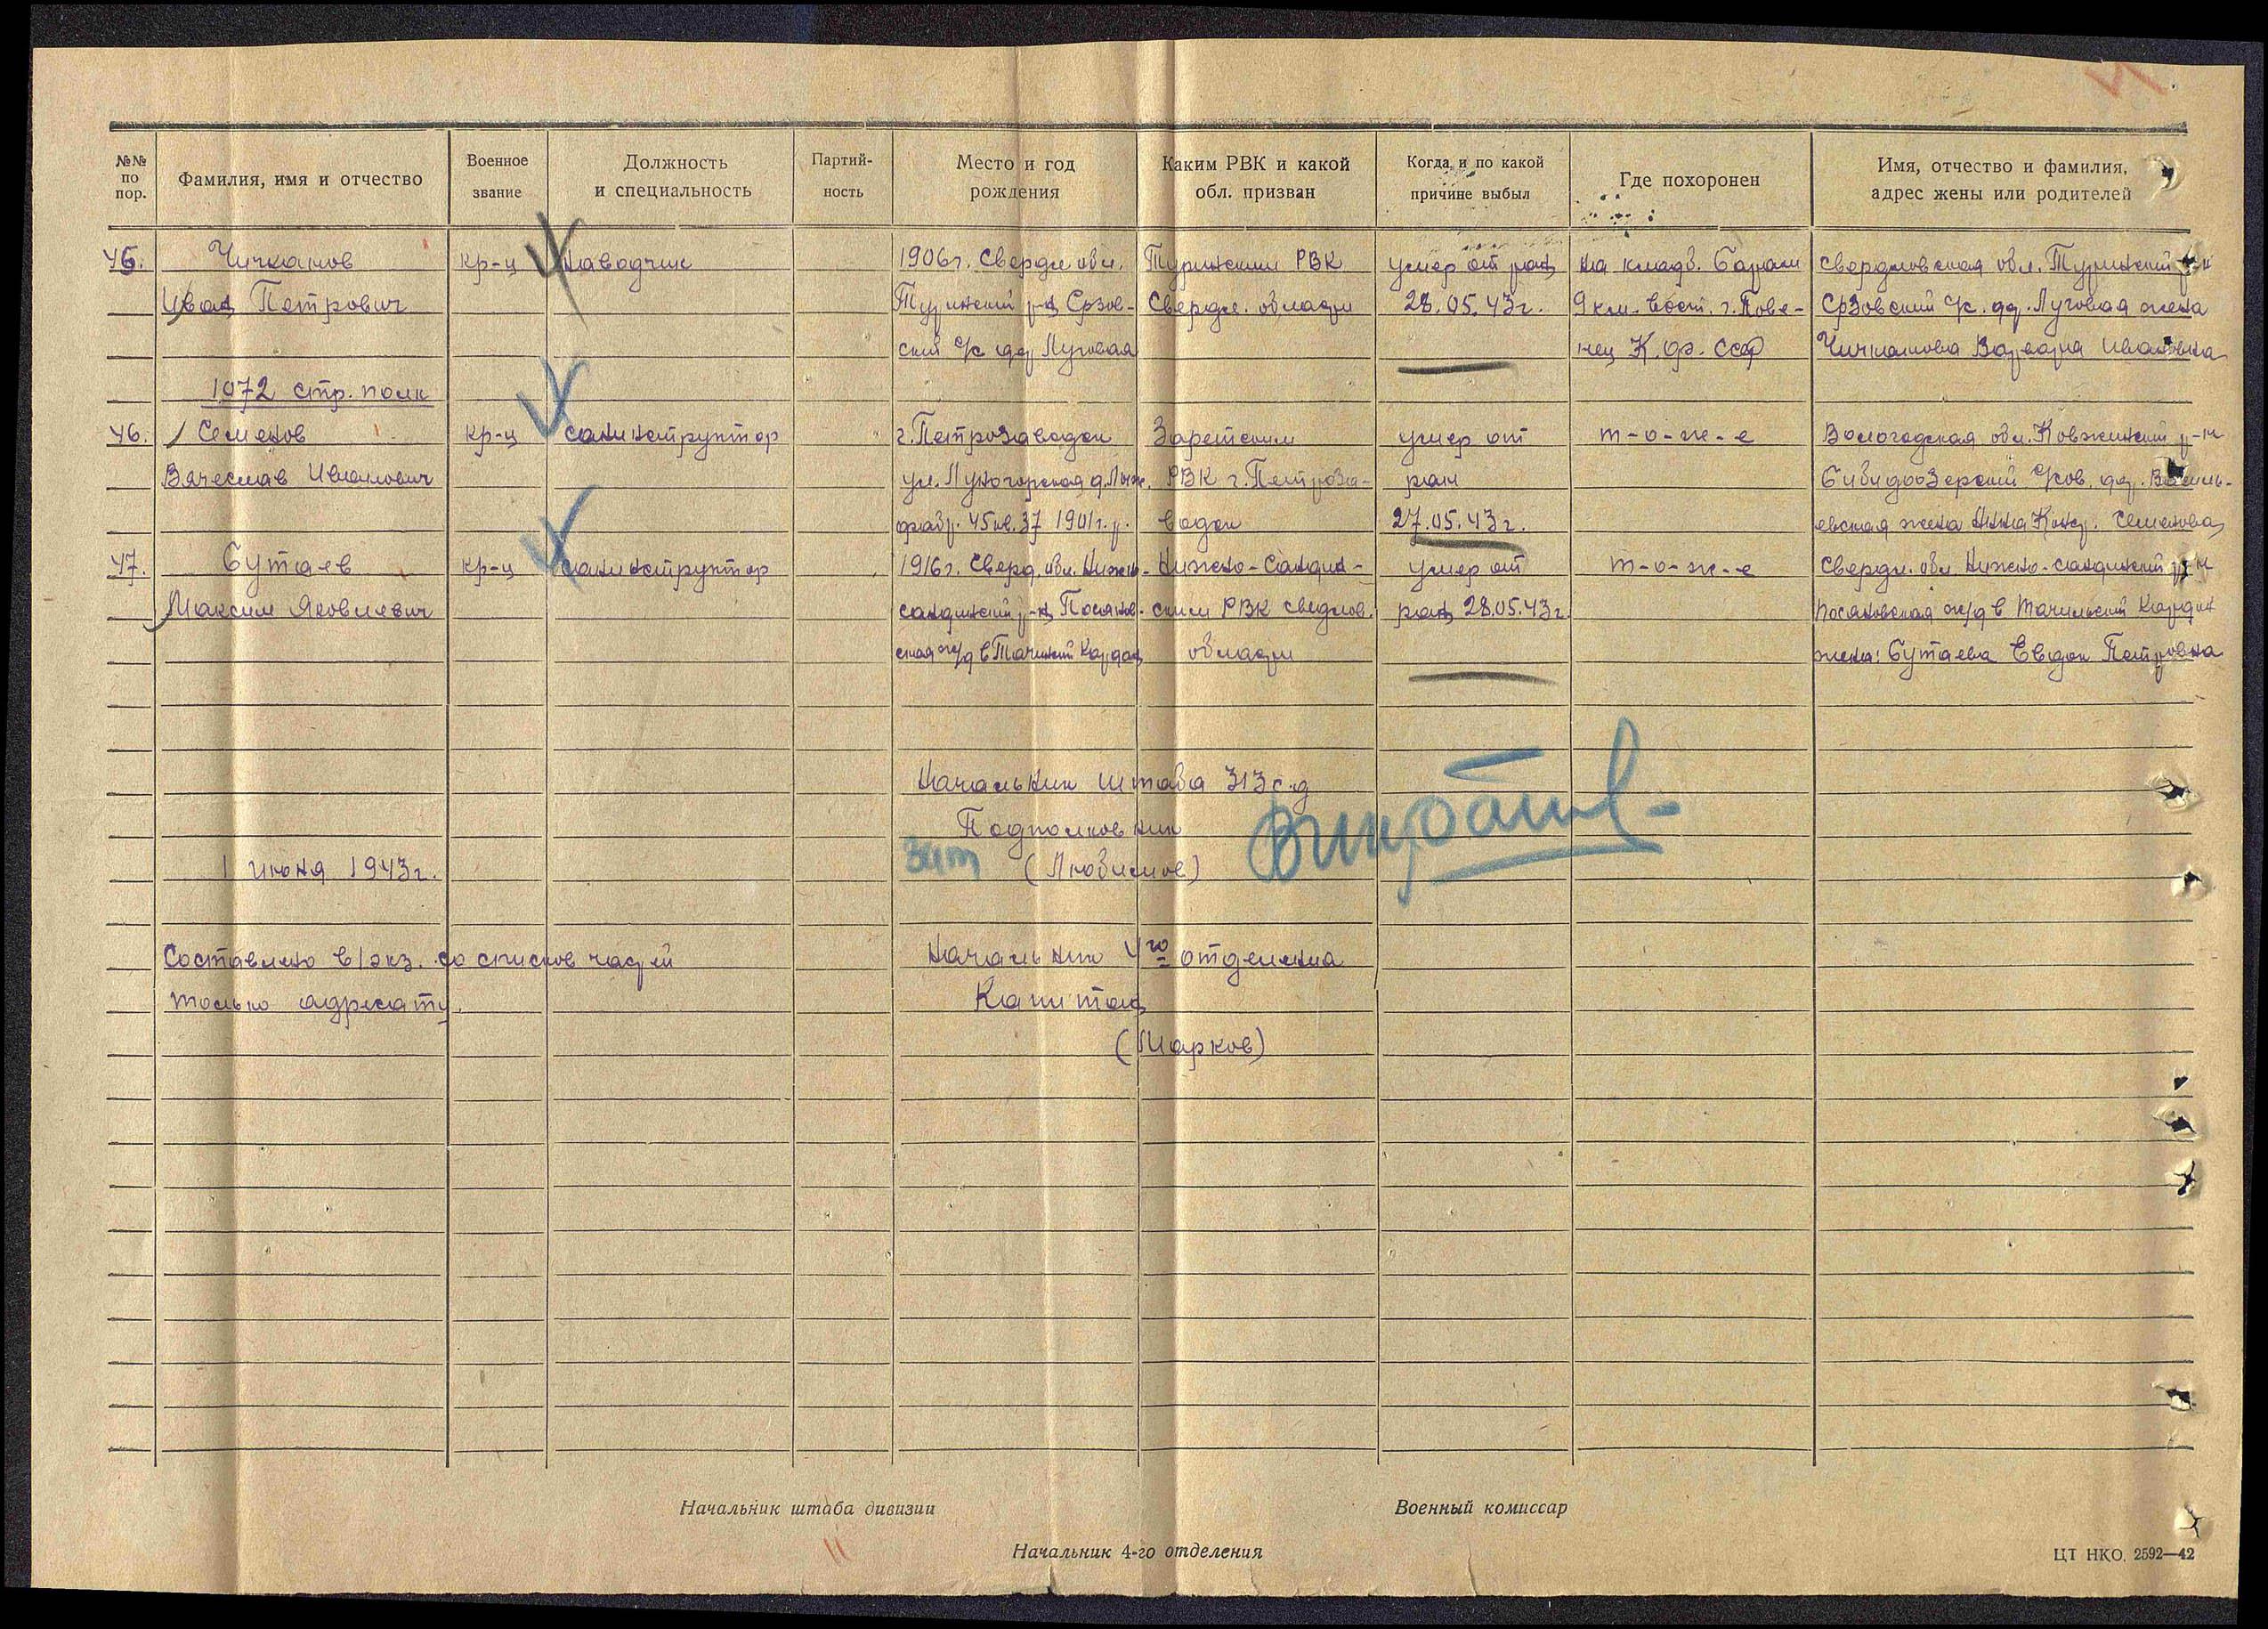 №№ по пор.
Фамилия, имя и отчество
Военное звание
Должность и специальность
Партий-ность
Место и год рождения
Каким РВК и какой обл. призван
Когда и по какой причине выбыл
Где похоронен
Имя, отчество и фамилия, адрес жены или родителей
45. Чичканов кр-ц наводчик 1906г. Свердл обл. Туринским РВК умер от ран на кладб. Сверловская обл. Туринский р-н
Иван Петрович Туринский р-н Срзов- Свердл. области 28.05.43г. 9 км. вост. г. Пове- Срзовский с/с. дд. Луговая жена
ский с/с дд Луговая нец К.ф. ССР Чичканова Варвара Ивановна
1072 стр. полк
46. Семенов кр-ц санинструктор г. Петрозаводск Зарецким умер от т-о-ж-е Вологодская обл. Ковжинский р-н
Вячеслав Иванович ул. Лукогорская д. Лыж. РВК г. Петроза- ран с/сов. дд. Василь-
фабр. 45 кв. 37 1901г. р. водск 27.05.43г. евская жена Нина Конст. Семенова
47. Бутаев кр-ц санинструктор 1916г. Сверд. обл. Нижне- Нижне-Салдин- умер от т-о-ж-е Свердл. обл. Нижне-салдинский р-н
Максим Яковлевич салдинский р-н ским РВК свердлов. ран 28.05.43г. ж/д
ж/д области жена: Бутаева Евдок Петровна
Начальник штаба 313 с.д
Подполковник
1 июня 1943г. зам (Любимов)
Составлено в 1 экз. со списков частей Начальник 4го отделения
только адресату. Капитан
(Марков)
Начальник штаба дивизии Военный комиссар
Начальник 4-го отделения
ЦТ НКО. 2592—42